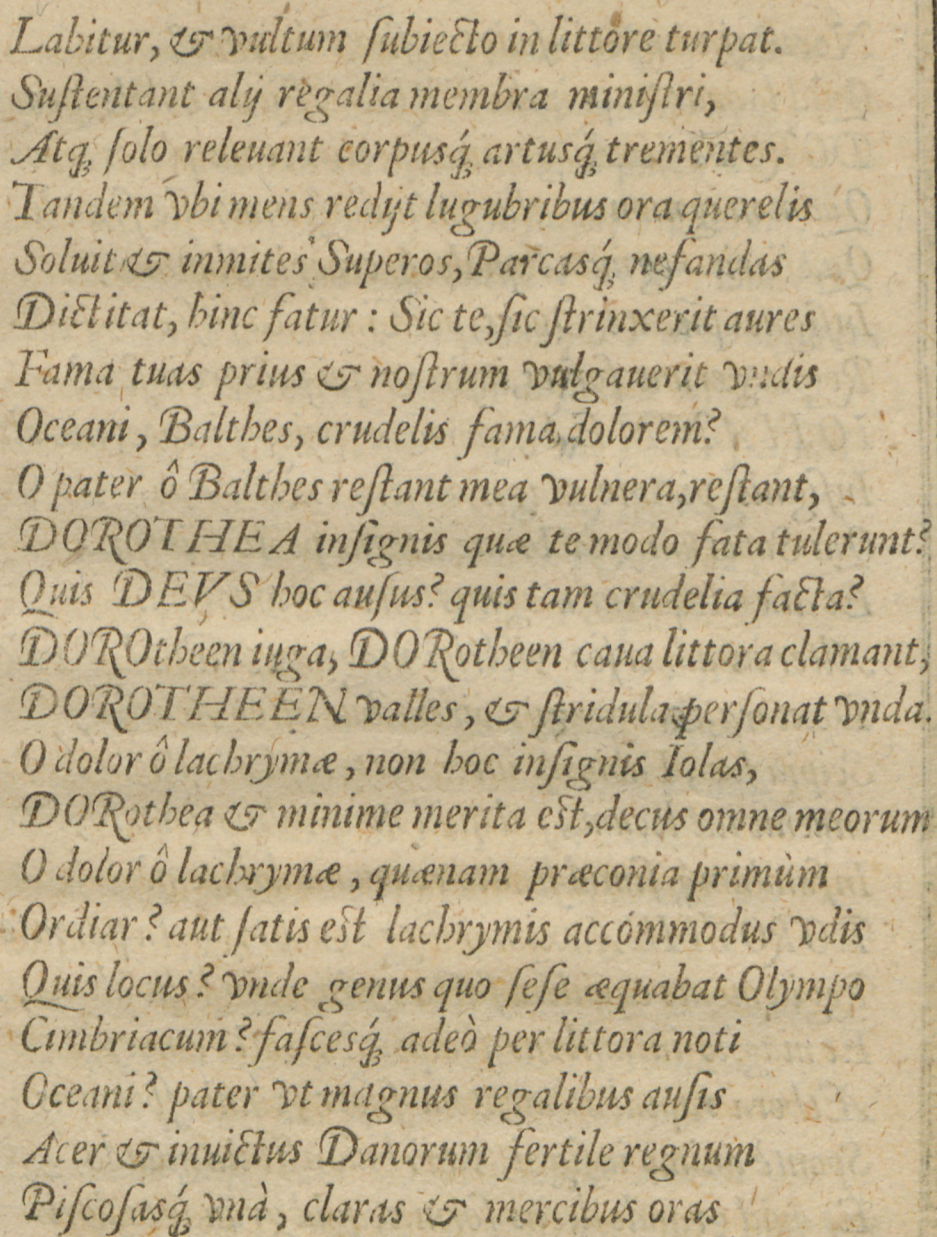 Labitur, & vultum ſubiecto in littore turpat.
Suſtentant alij regalia membra miniſtri,
Atq́; ſolo releuant corpusq́; artusq́; trementes.
Tandem vbi mens redijt lugubribus ora querelis
Soluit & inmites Superos, Parcasq́; nefandas
Dictitat, hinc fatur : Sic te, ſic ſtrinxerit aures
Fama tuas prius & noſtrum vulgauerit vndis
Oceani, Balthes, crudelis fama, dolorem?
O pater ô Balthes reſtant mea vulnera, reſtant,
DOROTHEA inſignis quæ te modo fata tulerunt?
Quis DEVS hoc auſus? quis tam crudelia facta?
DOROtheen iuga, DORotheen caua littora clamant,
DOROTHEEN valles, & ſtridula perſonat vnda.
O dolor ô lachrymæ, non hoc inſignis Iolas,
DORothea & minime merita eſt, decus omne meorum
O dolor ô lachrymæ, quænam præconia primùm
Ordiar? aut ſatis eſt lachrymis accómmodus vdis
Quis locus? vnde genus quo ſeſe æquabat Olympo
Cimbriacum? faſcesq́; adeò per littora noti
Oceani? pater vt magnus regalibus auſis
Acer & inuictus Danorum fertile regnum
Piſcoſasq́; vnà, claras & mercibus oras